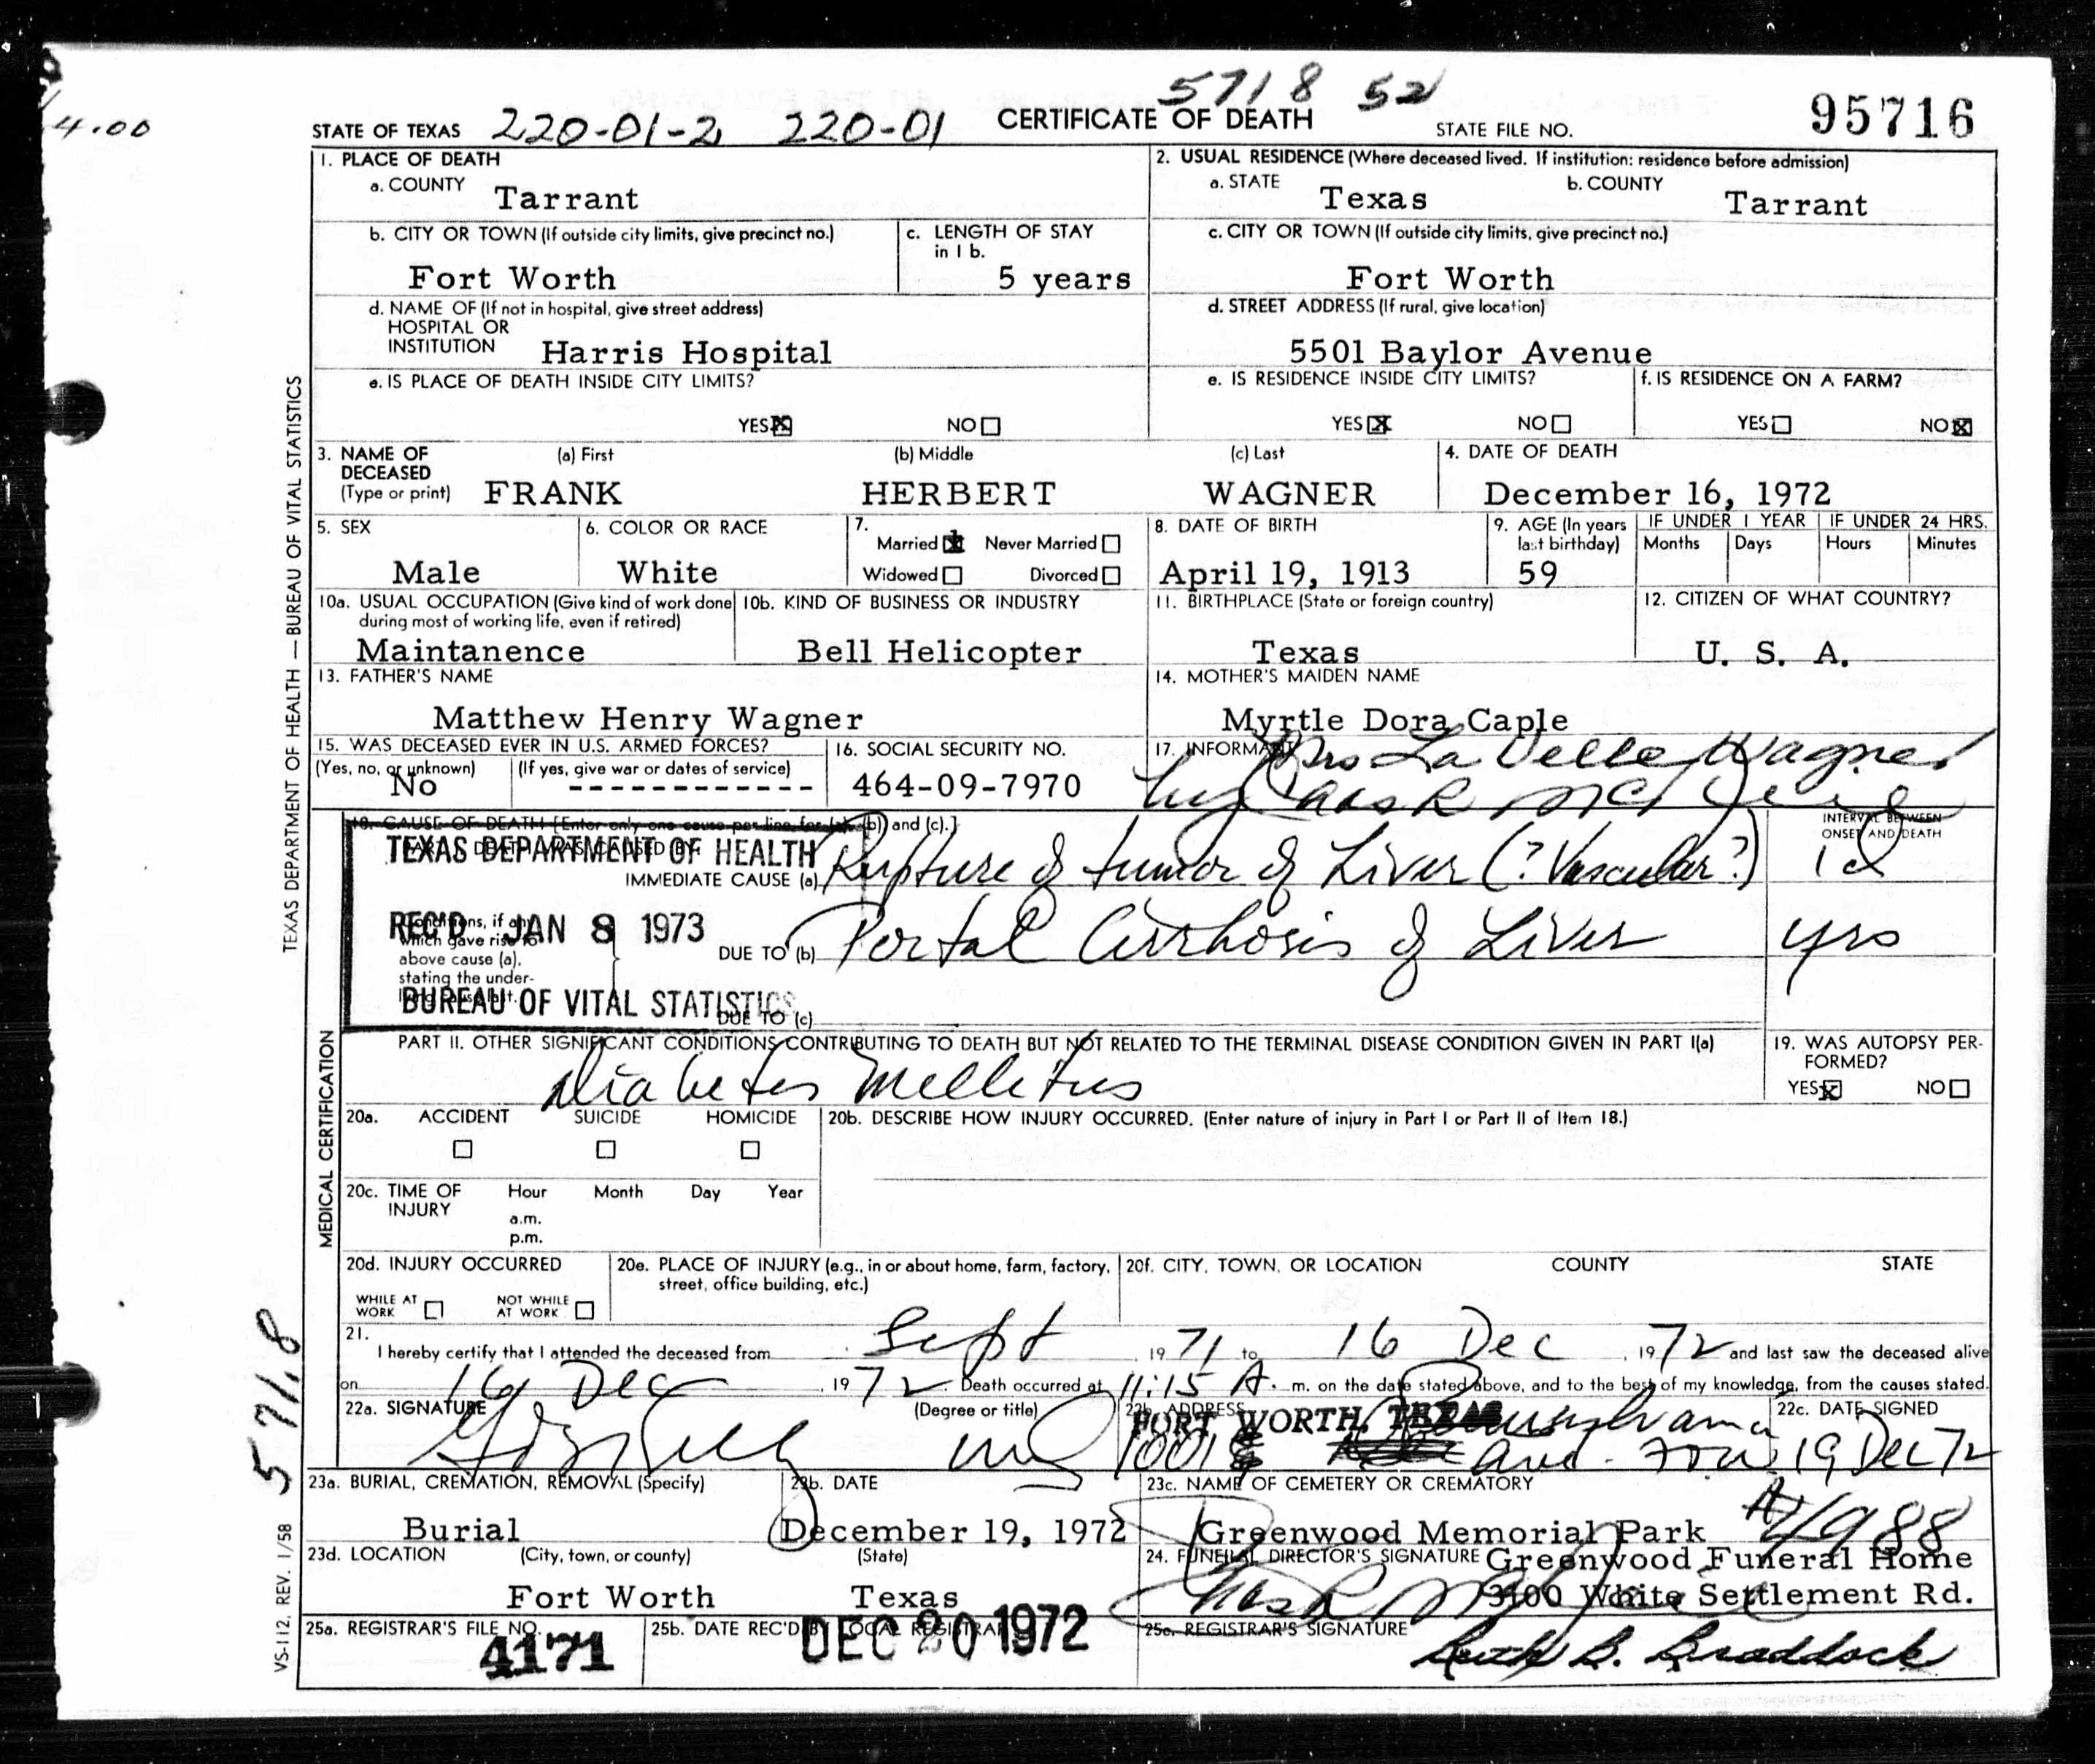 4.00
5718 52
STATE OF TEXAS 220-01-2 220-01 CERTIFICATE OF DEATH STATE FILE NO. 95716
1. PLACE OF DEATH
a. COUNTY Tarrant
2. USUAL RESIDENCE (Where deceased lived. If institution: residence before admission)
a. STATE Texas b. COUNTY Tarrant
b. CITY OR TOWN (If outside city limits, give precinct no.) Fort Worth
c. LENGTH OF STAY in 1 b. 5 years
c. CITY OR TOWN (If outside city limits, give precinct no.) Fort Worth
d. NAME OF (If not in hospital, give street address) HOSPITAL OR INSTITUTION Harris Hospital
d. STREET ADDRESS (If rural, give location) 5501 Baylor Avenue
e. IS PLACE OF DEATH INSIDE CITY LIMITS?
YES ☒ NO ☐
e. IS RESIDENCE INSIDE CITY LIMITS?
YES ☒ NO ☐
f. IS RESIDENCE ON A FARM?
YES ☐ NO ☒
3. NAME OF DECEASED (Type or print) (a) First (b) Middle (c) Last
FRANK HERBERT WAGNER
4. DATE OF DEATH
December 16, 1972
5. SEX Male
6. COLOR OR RACE White
7. Married ☒ Never Married ☐
Widowed ☐ Divorced ☐
8. DATE OF BIRTH April 19, 1913
9. AGE (In years last birthday) 59
IF UNDER 1 YEAR Months Days
IF UNDER 24 HRS. Hours Minutes
10a. USUAL OCCUPATION (Give kind of work done during most of working life, even if retired) Maintanence
10b. KIND OF BUSINESS OR INDUSTRY Bell Helicopter
11. BIRTHPLACE (State or foreign country) Texas
12. CITIZEN OF WHAT COUNTRY? U. S. A.
13. FATHER'S NAME Matthew Henry Wagner
14. MOTHER'S MAIDEN NAME Myrtle Dora Caple
15. WAS DECEASED EVER IN U.S. ARMED FORCES?
(Yes, no, or unknown) No (If yes, give war or dates of service) ------------
16. SOCIAL SECURITY NO. 464-09-7970
17. INFORMANT Mrs La Velle Wagner
by
18. CAUSE OF DEATH [Enter only one cause per line for (a), (b) and (c).]
INTERVAL BETWEEN ONSET AND DEATH
TEXAS DEPARTMENT OF HEALTH
REC'D JAN 8 1973
BUREAU OF VITAL STATISTICS
IMMEDIATE CAUSE (a) Rupture of tumor of Liver (? Vascular?) 1d
Conditions, if any, which gave rise to above cause (a), stating the underlying cause last.
DUE TO (b) Portal Cirrhosis of Liver yrs
DUE TO (c)
PART II. OTHER SIGNIFICANT CONDITIONS CONTRIBUTING TO DEATH BUT NOT RELATED TO THE TERMINAL DISEASE CONDITION GIVEN IN PART I(a)
Diabetes Mellitus
19. WAS AUTOPSY PERFORMED?
YES ☒ NO ☐
20a. ACCIDENT ☐ SUICIDE ☐ HOMICIDE ☐
20b. DESCRIBE HOW INJURY OCCURRED. (Enter nature of injury in Part I or Part II of Item 18.)
20c. TIME OF INJURY Hour Month Day Year
a.m.
p.m.
20d. INJURY OCCURRED
WHILE AT WORK ☐ NOT WHILE AT WORK ☐
20e. PLACE OF INJURY (e.g., in or about home, farm, factory, street, office building, etc.)
20f. CITY, TOWN, OR LOCATION COUNTY STATE
21.
I hereby certify that I attended the deceased from Sept, 1971 to 16 Dec, 1972 and last saw the deceased alive
on 16 Dec, 1972. Death occurred at 11:15 A. m. on the date stated above, and to the best of my knowledge, from the causes stated.
22a. SIGNATURE (Degree or title) MD
22b. ADDRESS FORT WORTH, TEXAS
1001 Pennsylvania Ave.
22c. DATE SIGNED 19 Dec 72
23a. BURIAL, CREMATION, REMOVAL (Specify) Burial
23b. DATE December 19, 1972
23c. NAME OF CEMETERY OR CREMATORY Greenwood Memorial Park
23d. LOCATION (City, town, or county) (State)
Fort Worth Texas
24. FUNERAL DIRECTOR'S SIGNATURE Greenwood Funeral Home
3100 White Settlement Rd.
25a. REGISTRAR'S FILE NO. 4171
25b. DATE REC'D BY LOCAL REGISTRAR DEC 20 1972
25c. REGISTRAR'S SIGNATURE Ruth B. Braddock
TEXAS DEPARTMENT OF HEALTH — BUREAU OF VITAL STATISTICS
MEDICAL CERTIFICATION
571.8
VS-112, REV. 1/58